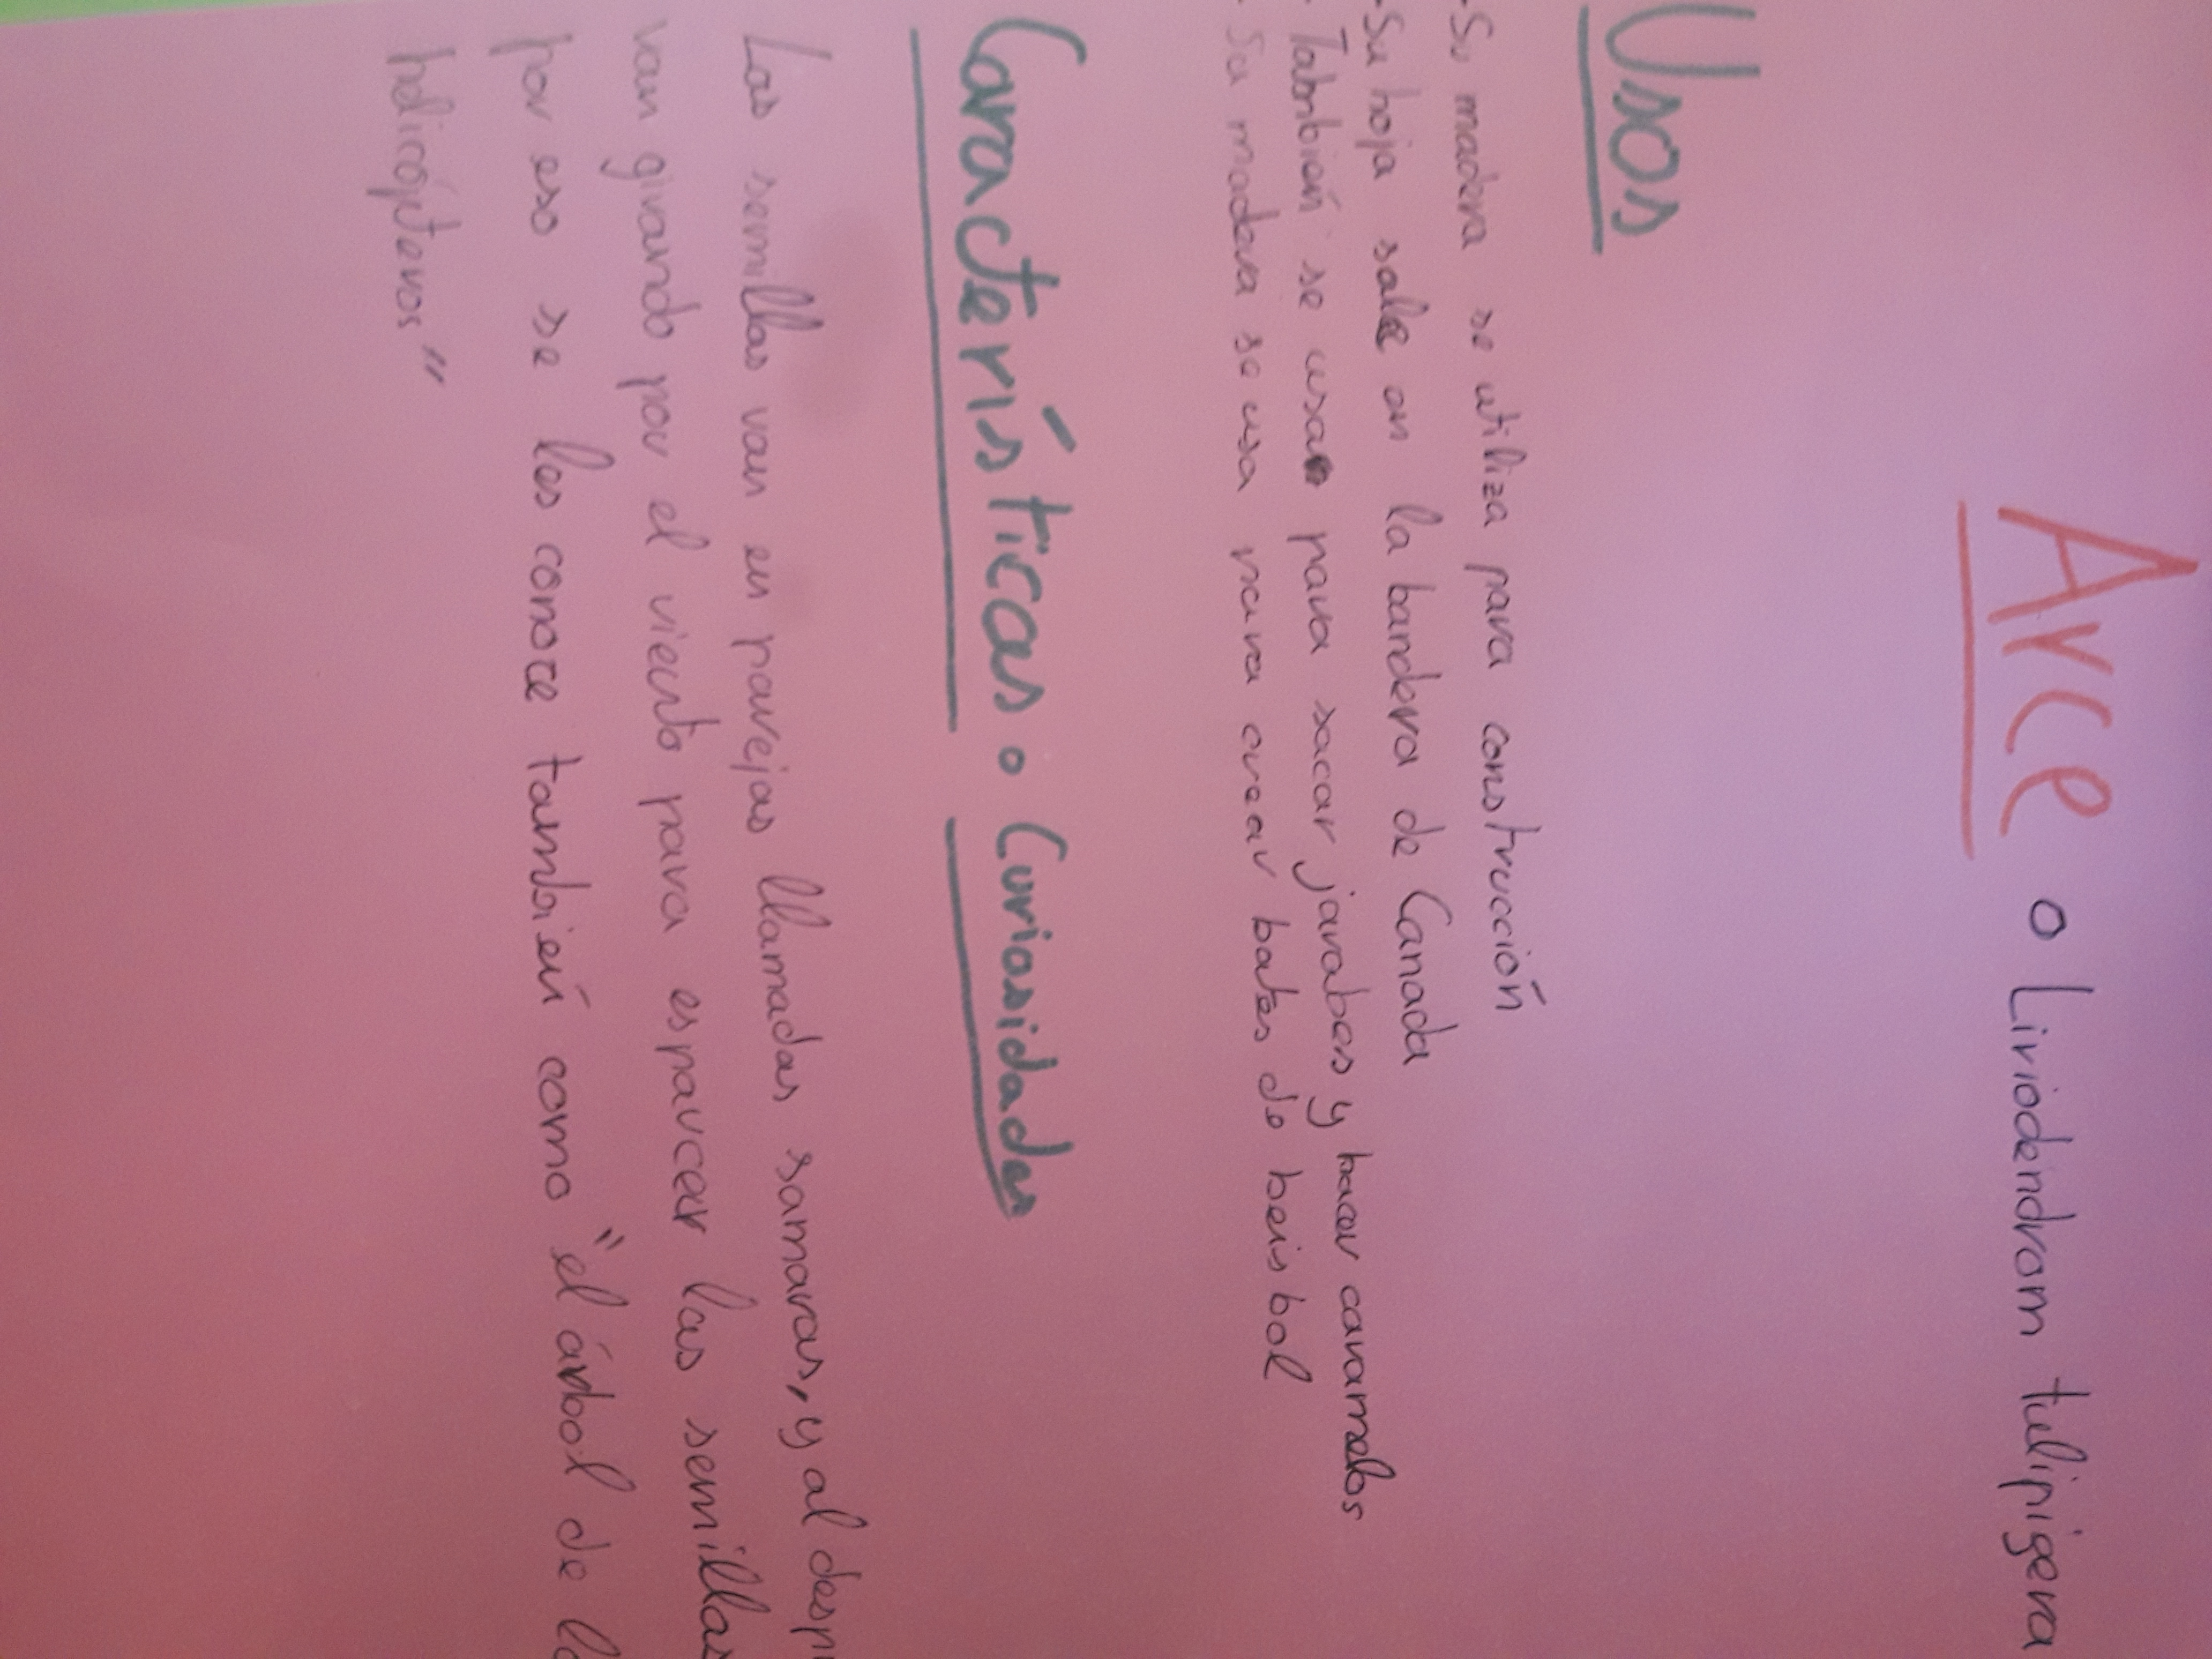 Arce o Liriodendrom tulipigera
Usos
-Su madera se utiliza para construcción
-Su hoja sale en la bandera de Canada
- Tabnbién se usa para sacar jarabes y hacer caramelos
- Su madera se usa para crear bates de beisbol
Características o Curiosidades
Las semillas van en parejas llamadas samaras, y al desp
van girando por el viento para esparcer las semillas
por eso se les conoce también como "el árbol de l
helicópteros"